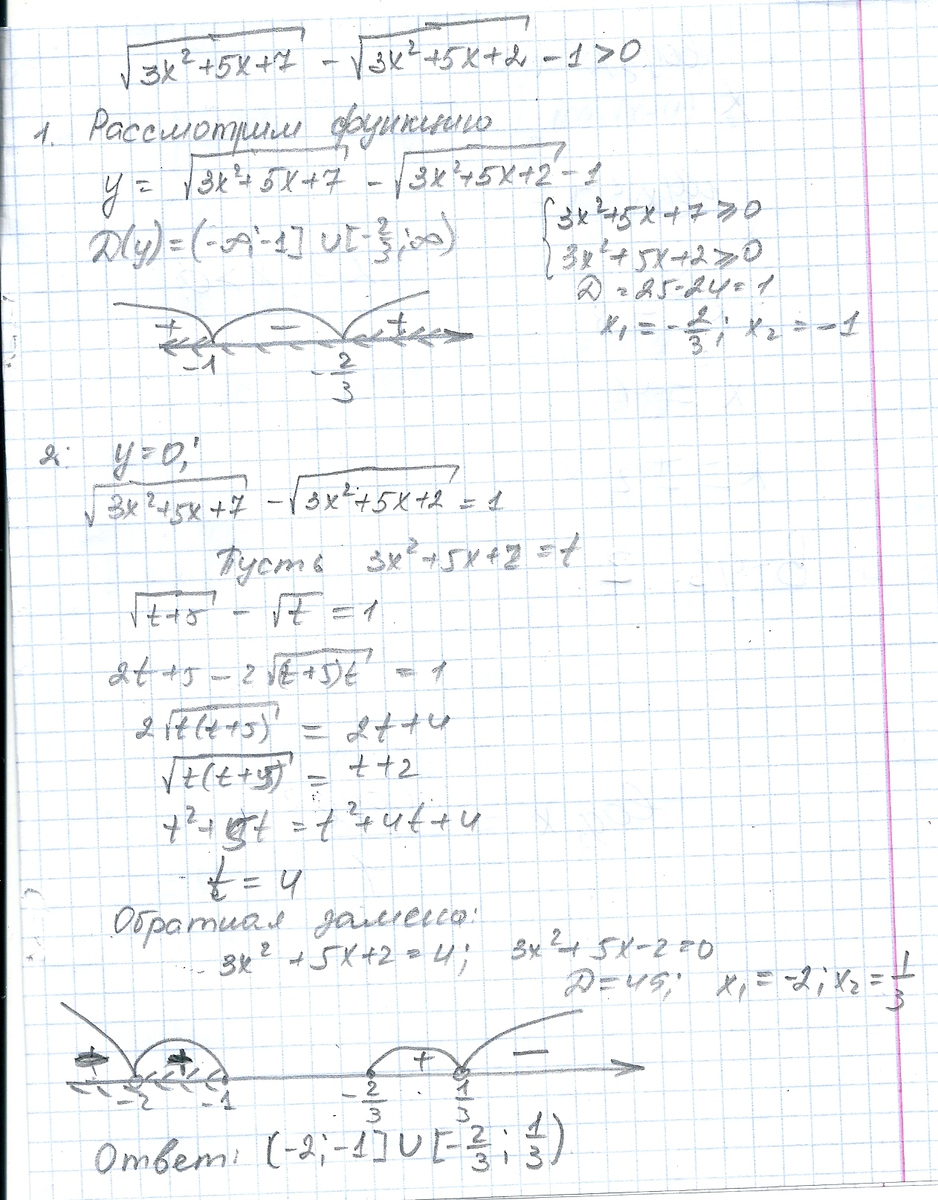 √3x²+5x+7 - √3x²+5x+2 - 1 > 0
1. Рассмотрим функцию
y = √3x²+5x+7 - √3x²+5x+2 - 1
{3x²+5x+7 ≥ 0
D(y) = (-∞; -1] ∪ [-2/3; ∞)
3x²+5x+2 ≥ 0
D = 25-24 = 1
x₁ = -2/3; x₂ = -1
+ - +
-1 -2/3
2. y=0;
√3x²+5x+7 - √3x²+5x+2 = 1
Пусть 3x²+5x+2 = t
√t+5 - √t = 1
2t+5 - 2√(t+5)t = 1
2√t(t+5) = 2t+4
√t(t+5) = t+2
t²+5t = t²+4t+4
t = 4
Обратная замена:
3x²+5x+2=4; 3x²+5x-2=0
D=49; x₁ = -2; x₂ = 1/3
+ + -
-2 -1 -2/3 1/3
Ответ: (-2; -1] ∪ [-2/3; 1/3)